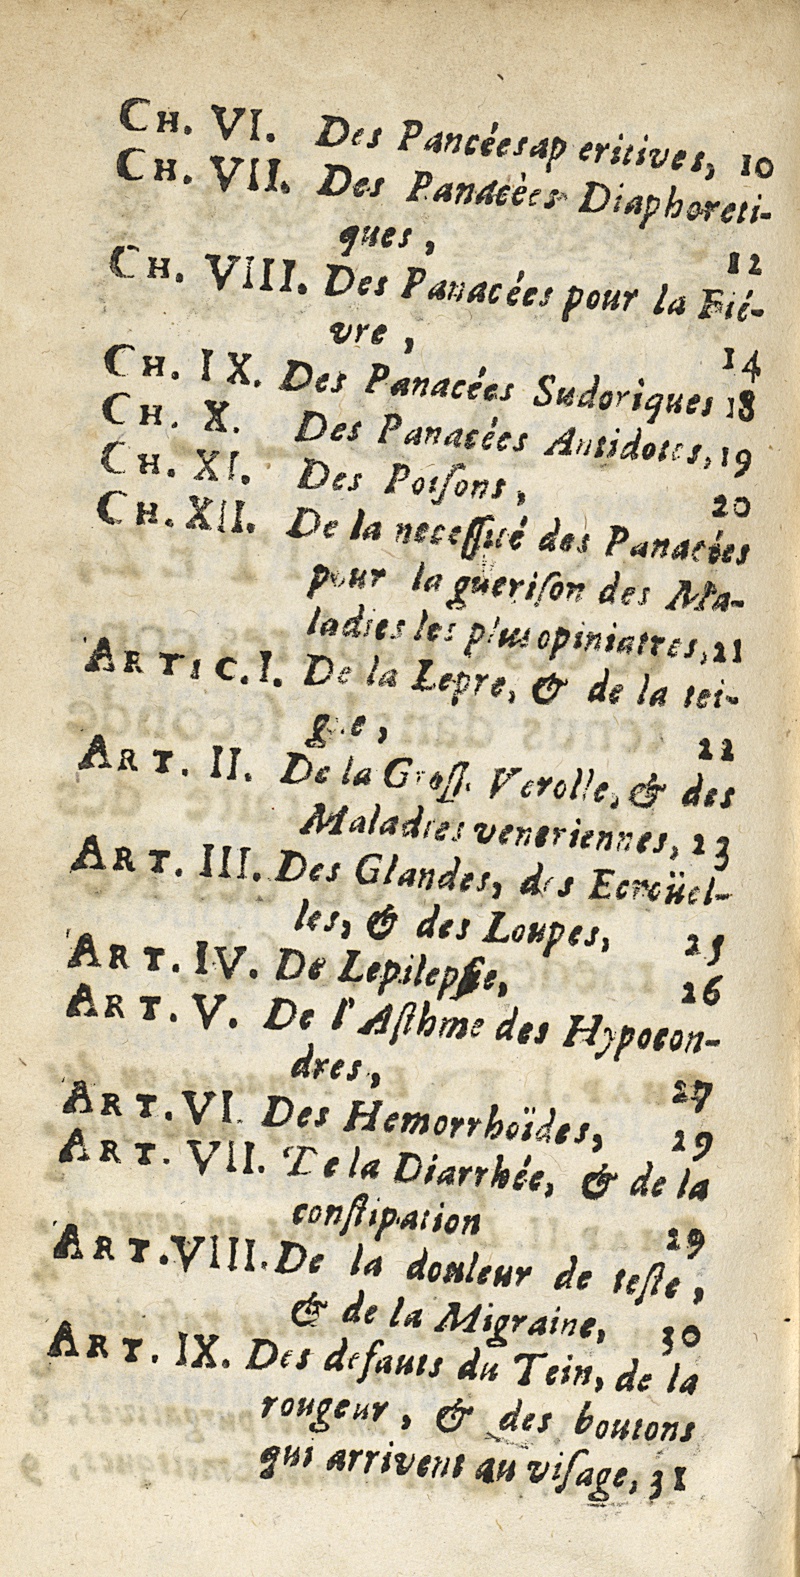 CH. VI. Des Pancéesap eritives, 10
CH. VII. Des Panacèes Diaphoreti-
ques, 12
CH. VIII. Des Panacées pour la Fié-
vre, 14
CH. IX. Des Panacées Sudoriques 18
CH. X. Des Panacées Antidotes, 19
CH. XI. Des Poisons, 20
CH. XII. De la necessité des Panacées
pour la guerison des Ma-
ladies les plus opiniatres, 21
ARTIC. I. De la Lepre, & de la tei-
gne, 22
ART. II. De la Grosse Verolle, & des
Maladies veneriennes, 23
ART. III. Des Glandes, des Ecroüel-
les, & des Loupes, 25
ART. IV. De Lepilepsie, 26
ART. V. De l'Asthme des Hypocon-
dres, 27
ART. VI. Des Hemorrhoïdes, 29
ART. VII. De la Diarrhée, & de la
constipation 29
ART. VIII. De la douleur de teste,
& de la Migraine, 30
ART. IX. Des defauts du Tein, de la
rougeur, & des boutons
qui arrivent au visage, 31